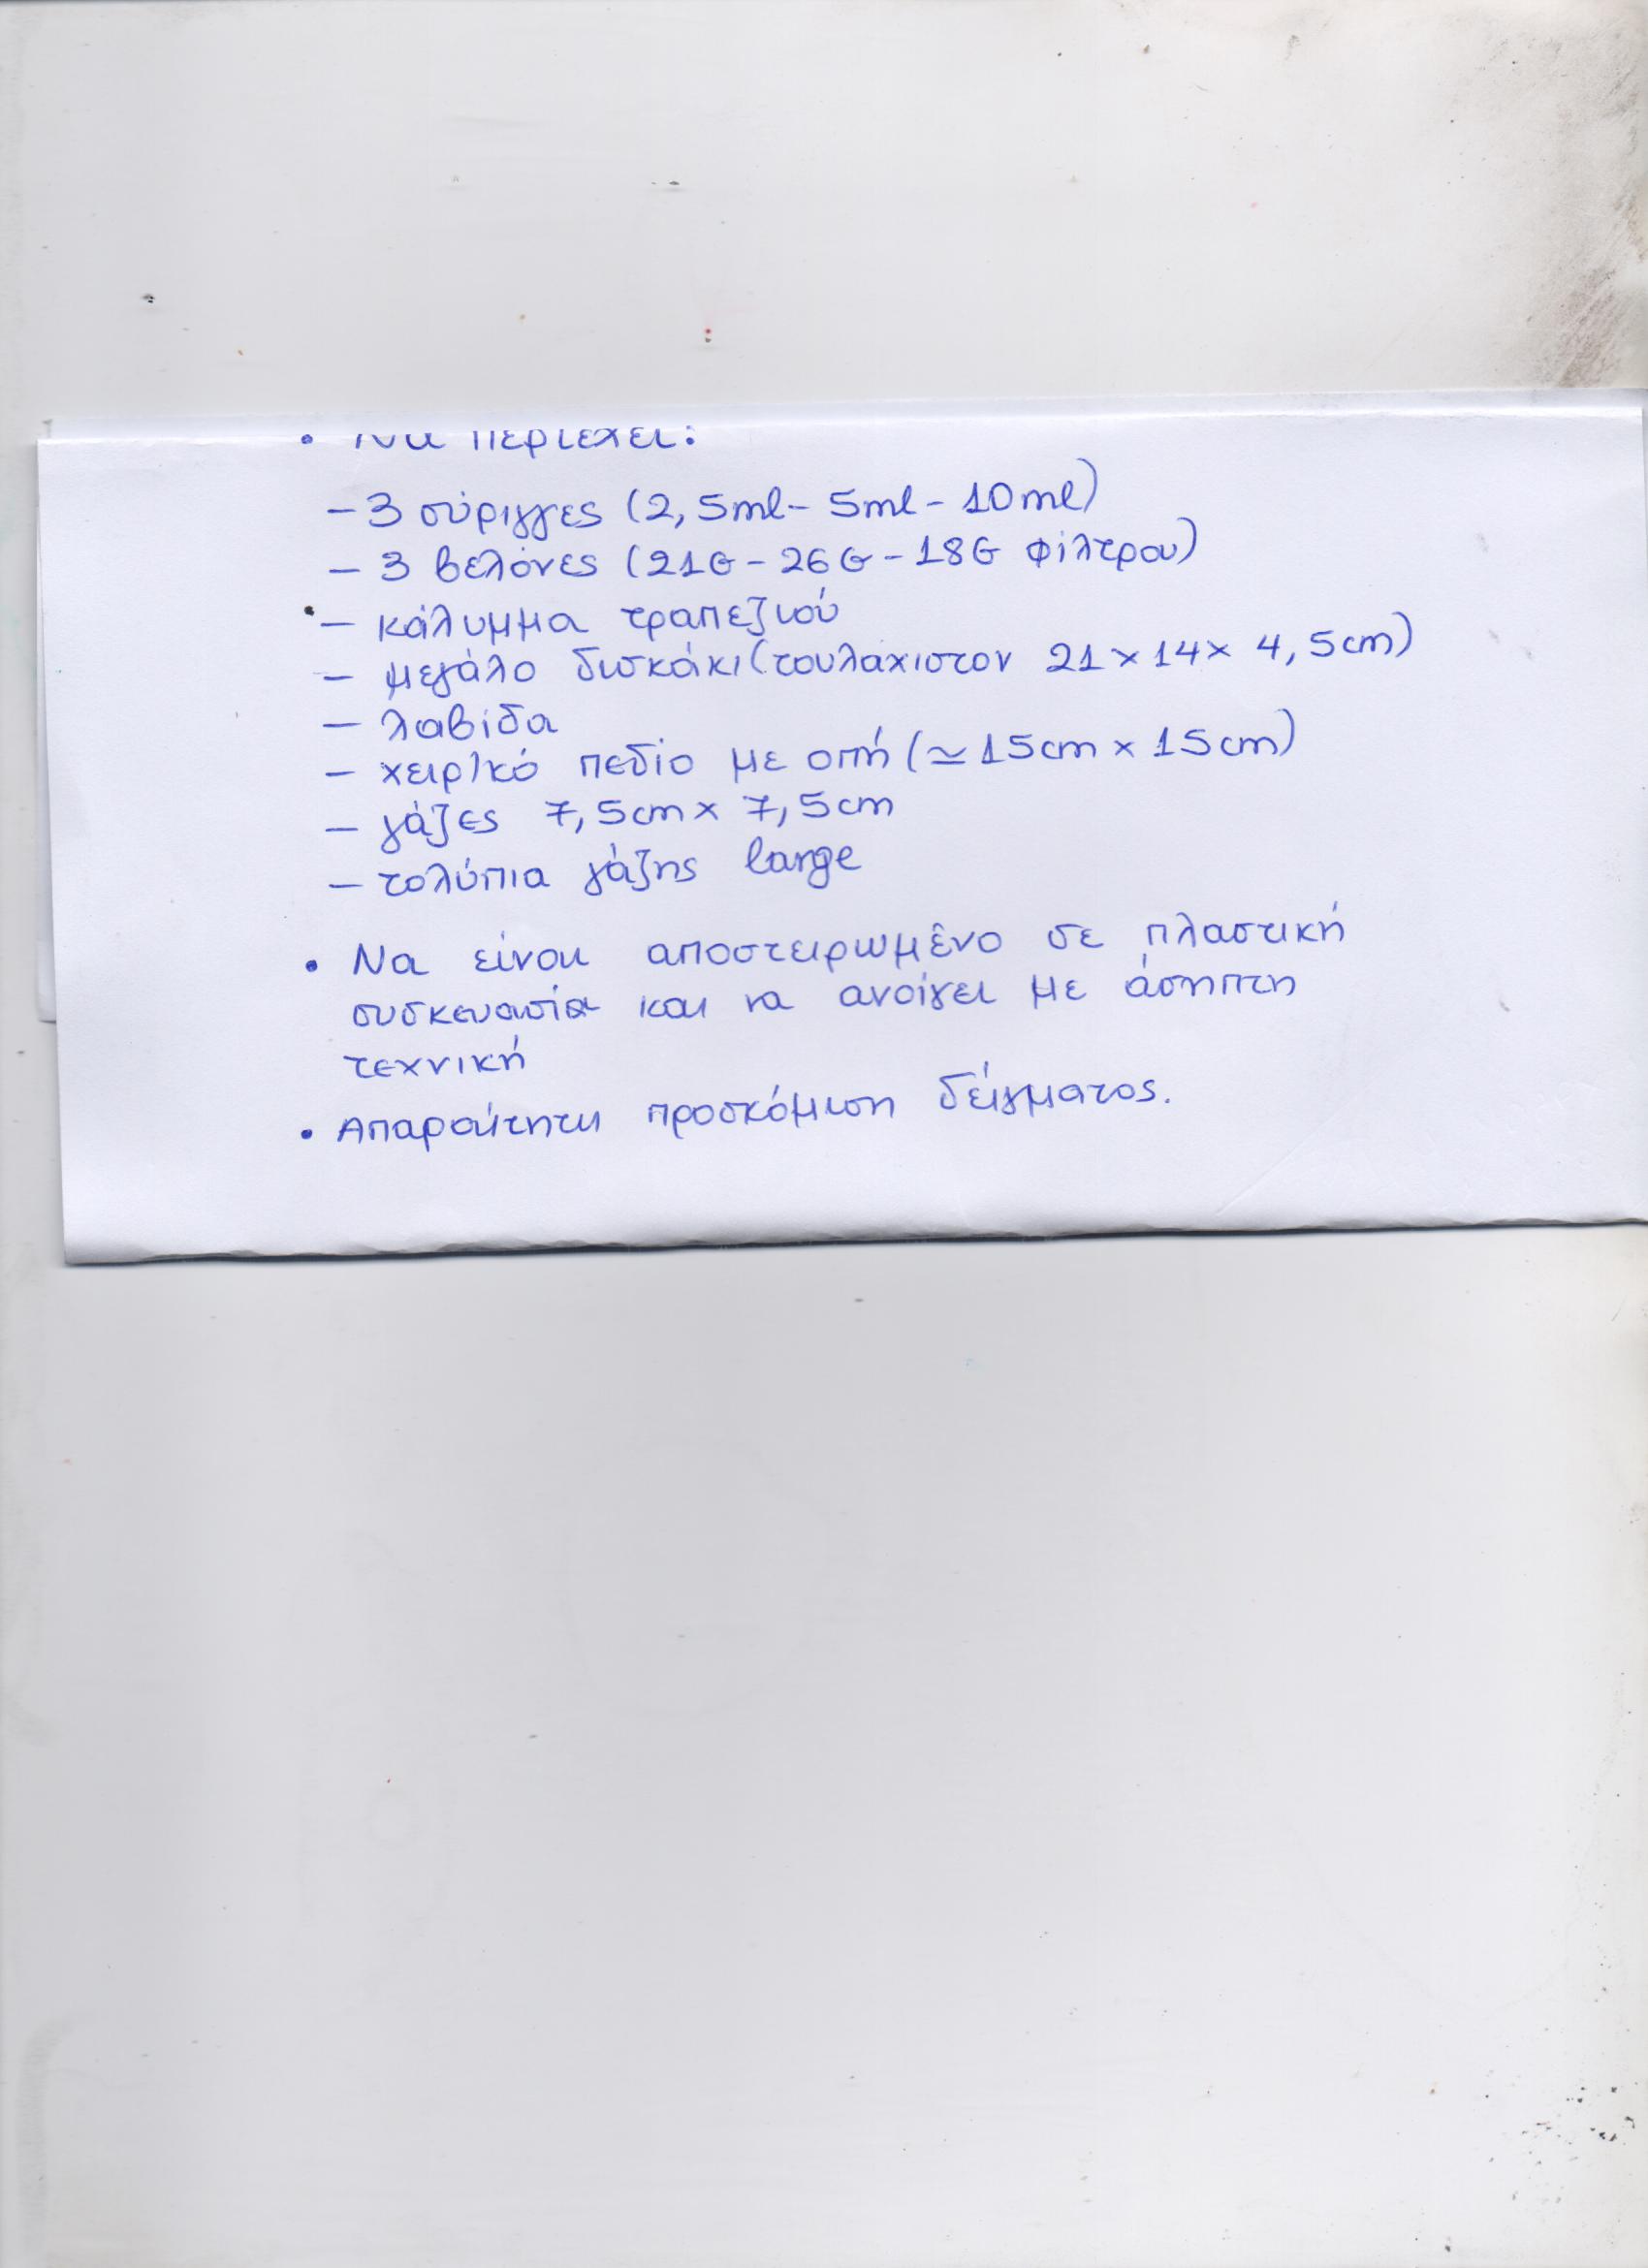 • Να περιέχει:
– 3 σύριγγες (2,5ml - 5ml - 10ml)
– 3 βελόνες (21G - 26G - 18G φίλτρου)
– κάλυμμα τραπεζιού
– μεγάλο δισκάκι (τουλαχιστον 21 x 14 x 4,5cm)
– λαβίδα
– χειρ/κό πεδίο με οπή (≃ 15cm x 15cm)
– γάζες 7,5cm x 7,5cm
– τολύπια γάζης large
• Να είναι αποστειρωμένο σε πλαστική
συσκευασία και να ανοίγει με άσηπτη
τεχνική
• Απαραίτητη προσκόμιση δείγματος.